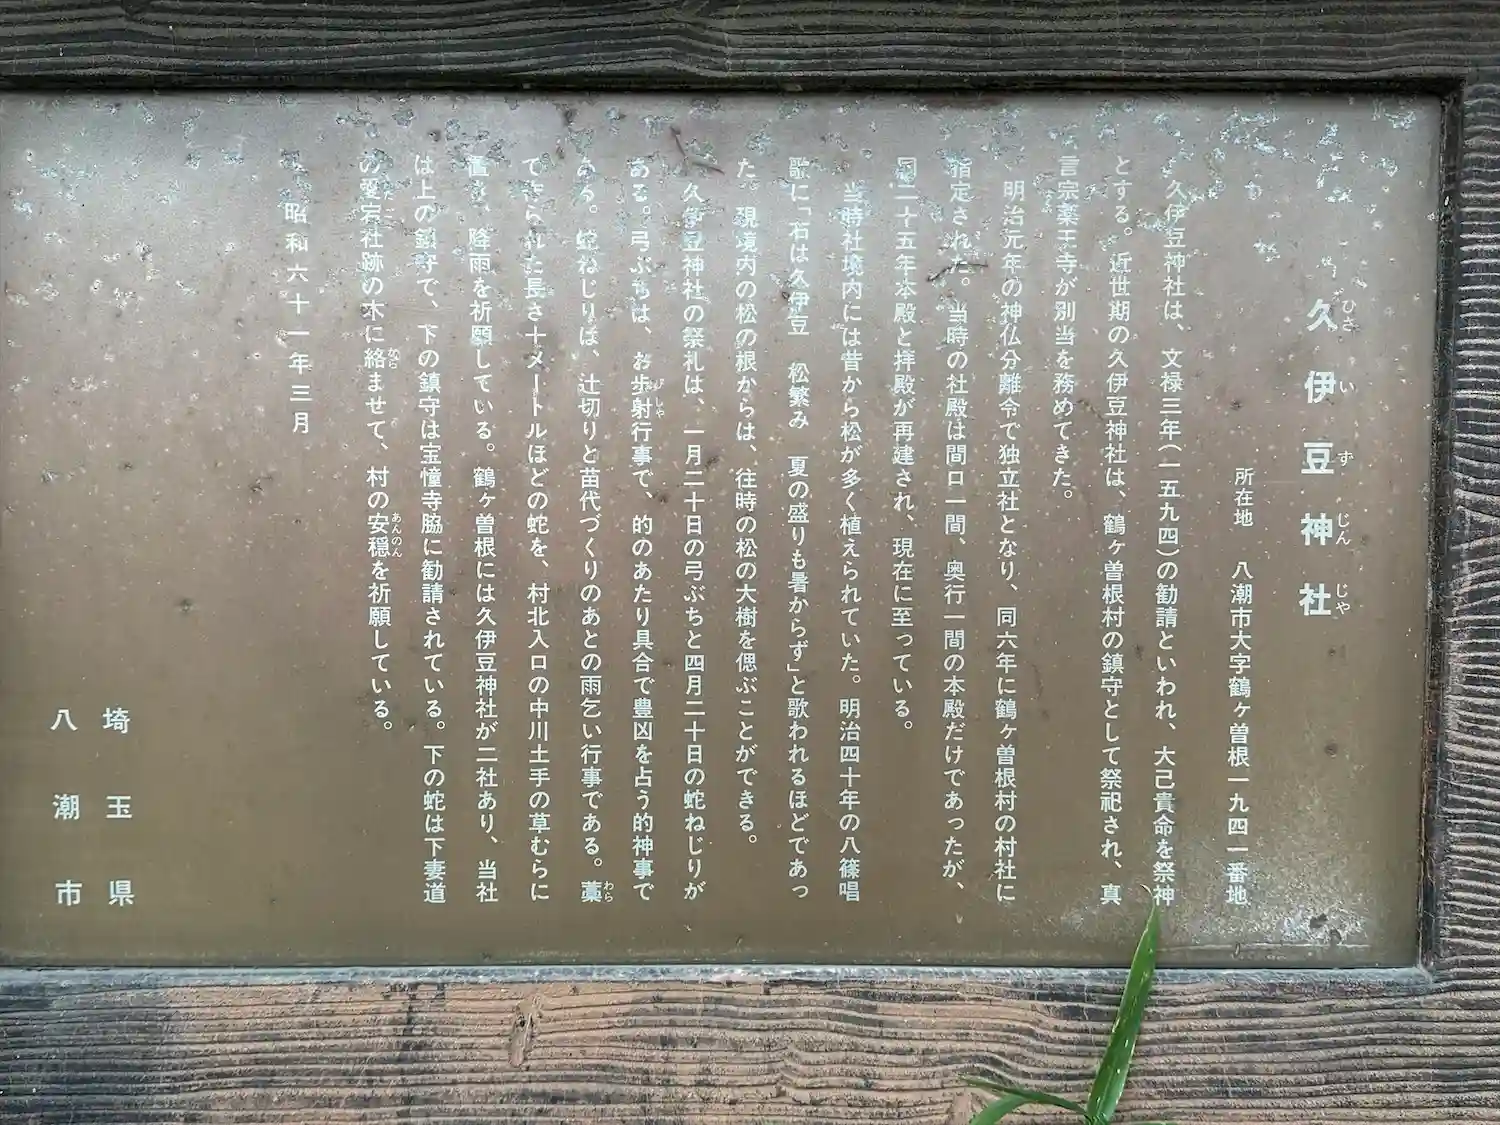 久伊豆神社
ひさいずじんじゃ
所在地 八潮市大字鶴ヶ曽根一九四一番地
久伊豆神社は、文禄三年(一五九四)の勧請といわれ、大己貴命を祭神
とする。近世期の久伊豆神社は、鶴ヶ曽根村の鎮守として祭祀され、真
言宗薬王寺が別当を務めてきた。
明治元年の神仏分離令で独立社となり、同六年に鶴ヶ曽根村の村社に
指定された。当時の社殿は間口一間、奥行一間の本殿だけであったが、
同二十五年本殿と拝殿が再建され、現在に至っている。
当時社境内には昔から松が多く植えられていた。明治四十年の八篠唱
歌に「右は久伊豆 松繁み 夏の盛りも暑からず」と歌われるほどであっ
た。現境内の松の根からは、往時の松の大樹を偲ぶことができる。
久伊豆神社の祭礼は、一月二十日の弓ぶちと四月二十日の蛇ねじりが
ある。弓ぶちは、お歩射行事で、的のあたり具合で豊凶を占う的神事で
びしゃ
ある。蛇ねじりは、辻切りと苗代づくりのあとの雨乞い行事である。藁
わら
で作られた長さ十メートルほどの蛇を、村北入口の中川土手の草むらに
置き、降雨を祈願している。鶴ヶ曽根には久伊豆神社が二社あり、当社
は上の鎮守で、下の鎮守は宝憧寺脇に勧請されている。下の蛇は下妻道
の愛宕社跡の木に絡ませて、村の安穏を祈願している。
から
あんのん
昭和六十一年三月
埼玉県
八潮市